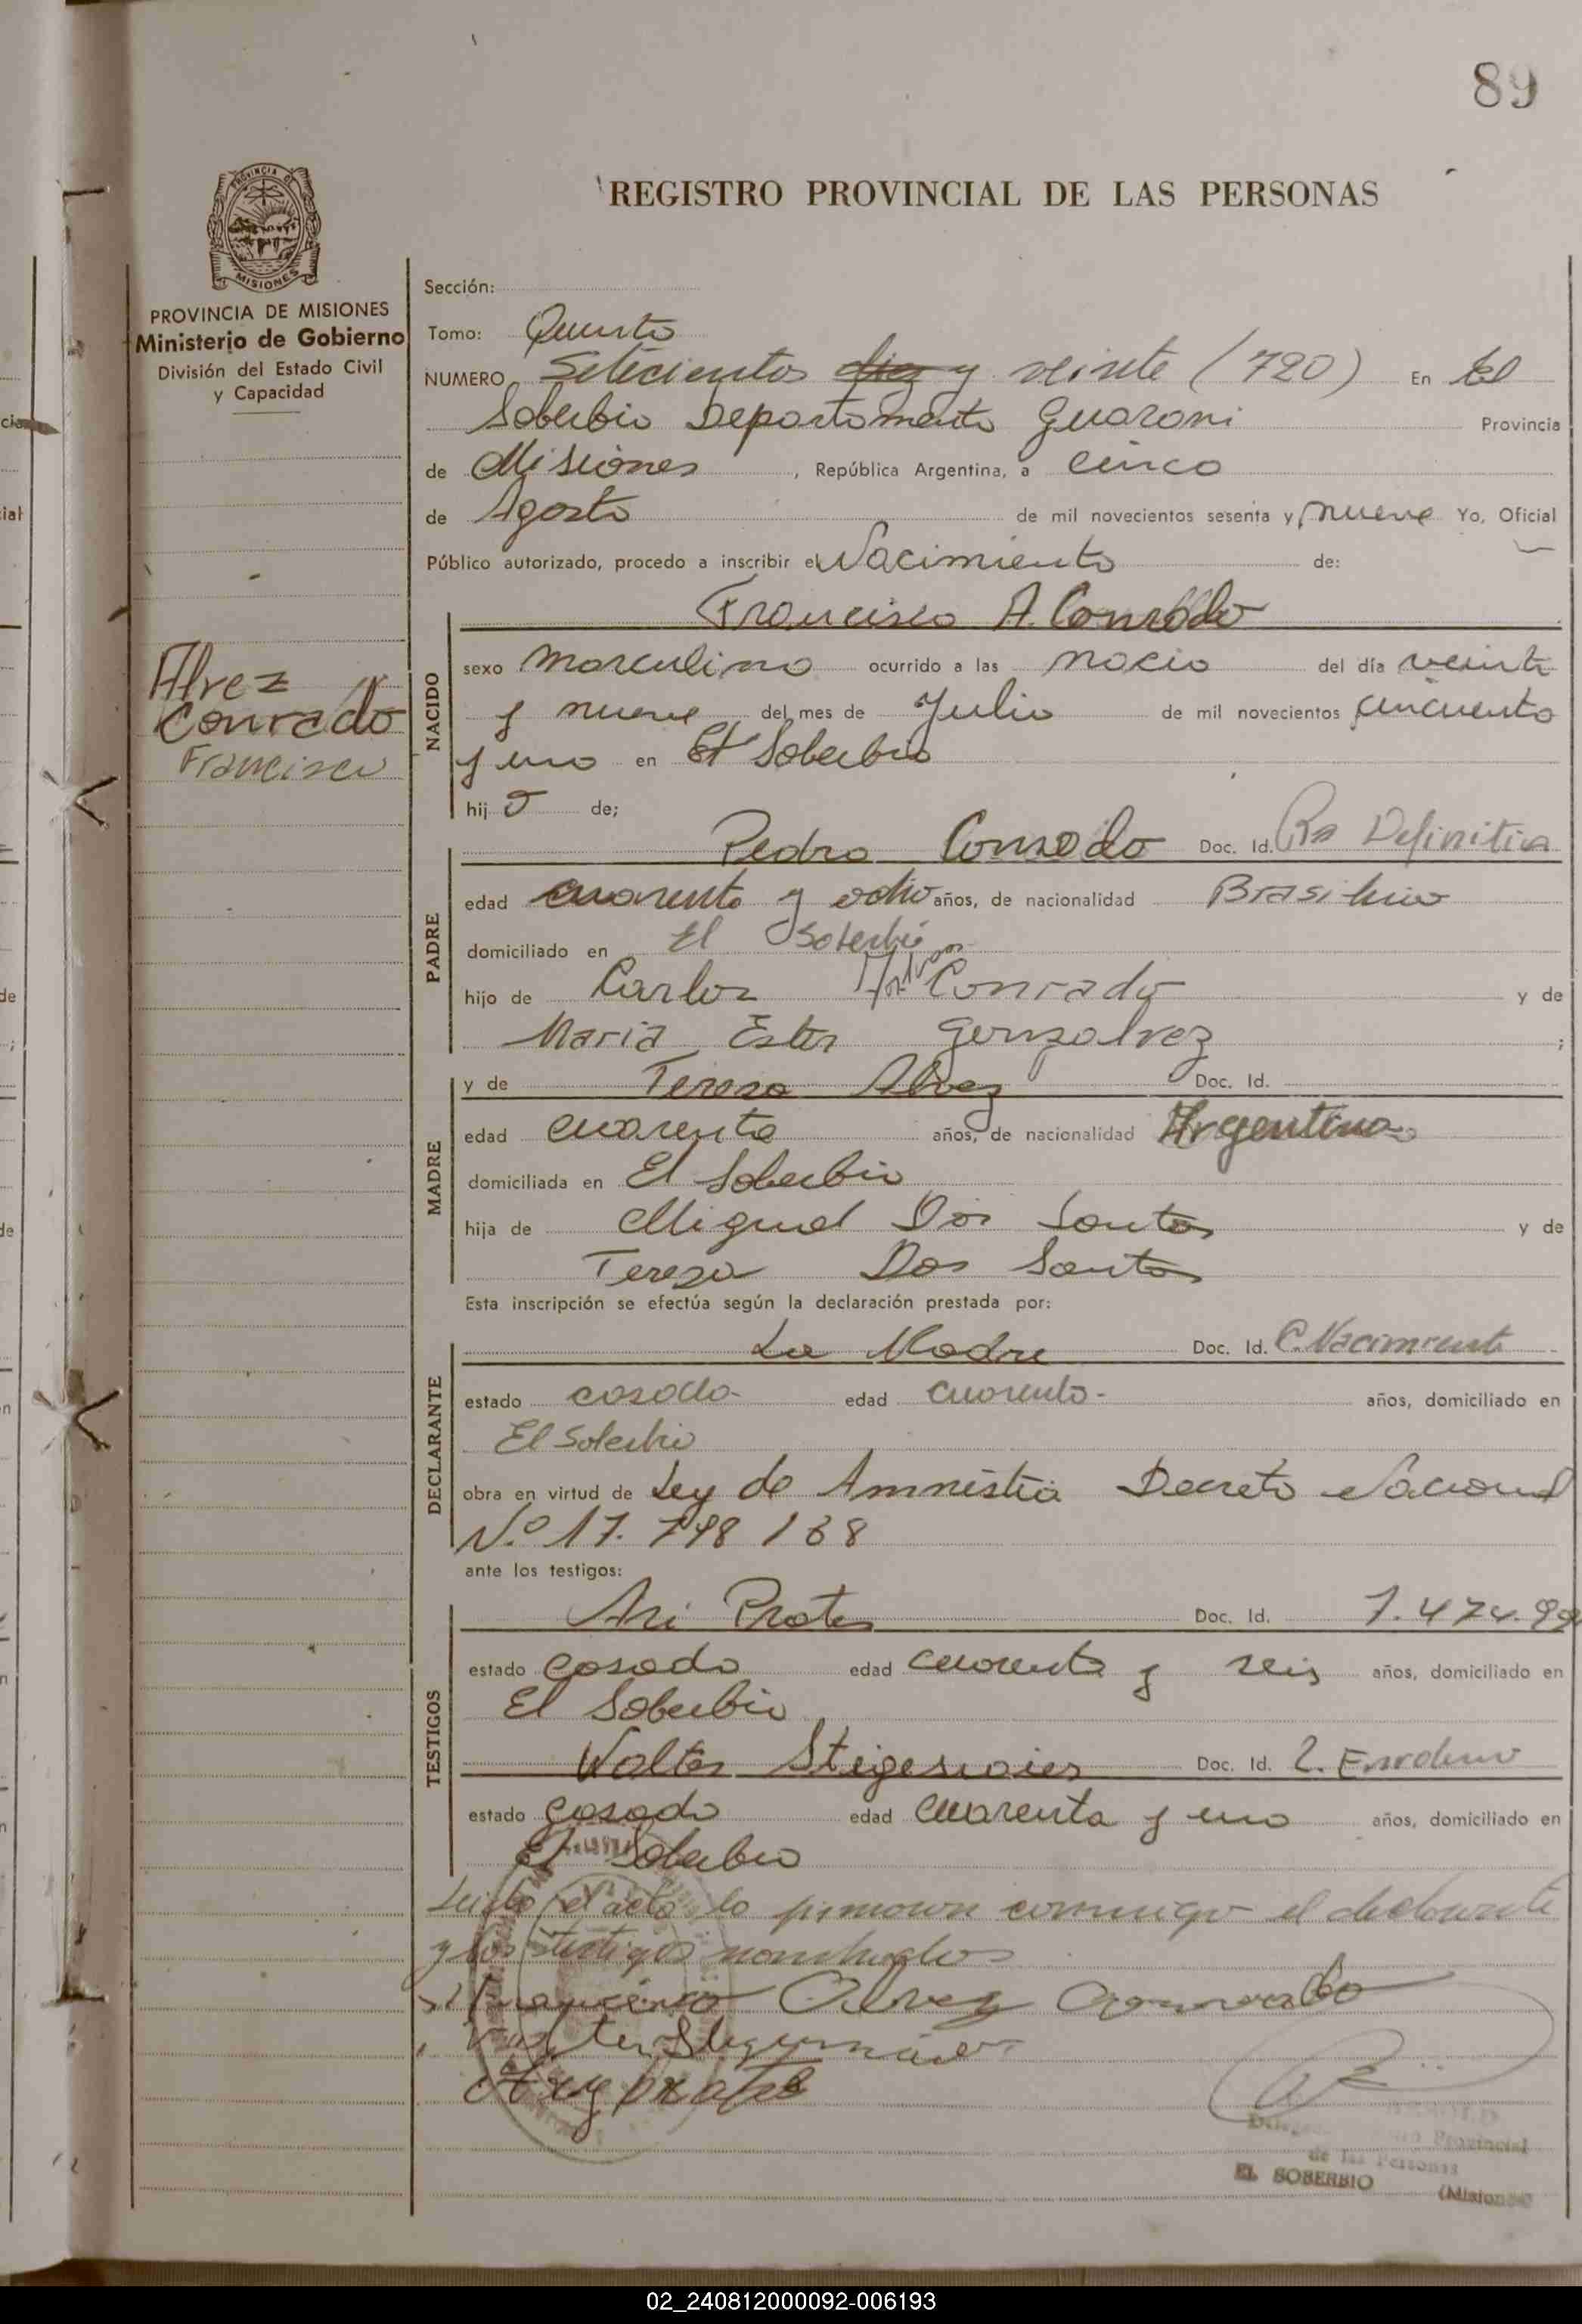 89
REGISTRO PROVINCIAL DE LAS PERSONAS
PROVINCIA DE
MISIONES
PROVINCIA DE MISIONES
Ministerio de Gobierno
División del Estado Civil
y Capacidad
Sección:
Tomo: Quinto
NUMERO Setecientos diez y veinte (720) En El
Soberbio Departamento Guaroni Provincia
de Misiones, República Argentina, a cinco
de Agosto de mil novecientos sesenta y nueve Yo, Oficial
Público autorizado, procedo a inscribir el Nacimiento de:
Francisco A. Conrado
Alvez
Conrado
Francisco
NACIDO
sexo Masculino ocurrido a las del día veinte
y nueve del mes de Julio de mil novecientos cincuenta
y uno en El Soberbio
hijo de;
PADRE
Pedro Conrado Doc. Id. Definitiva
edad cuarenta y ocho años, de nacionalidad
domiciliado en El Soberbio
hijo de Carlos Conrado y de
Maria Ester Gonzalvez ;
MADRE
y de Teresa Alvez Doc. Id.
edad cuarenta años, de nacionalidad Argentina
domiciliada en El Soberbio
hija de Miguel Dos Santos y de
Tereza Dos Santos
Esta inscripción se efectúa según la declaración prestada por:
DECLARANTE
La Madre Doc. Id. C. Nacimiento
estado casada edad cuarenta- años, domiciliado en
El Soberbio
obra en virtud de Ley de Amnistia Decreto Nacional
N.º 17.798/68
ante los testigos:
TESTIGOS
Ari Prates Doc. Id. 7.474.99
estado casado edad cuarenta y seis años, domiciliado en
El Soberbio
Walter Doc. Id. L. Enrolam
estado casado edad cuarenta y uno años, domiciliado en
El Soberbio
Leido el acta la firmaron conmigo el declarante
y los testigos nombrados
Alvez
Ary prates
Provincial
de las Personas
EL SOBERBIO (Misiones)
02_240812000092-006193